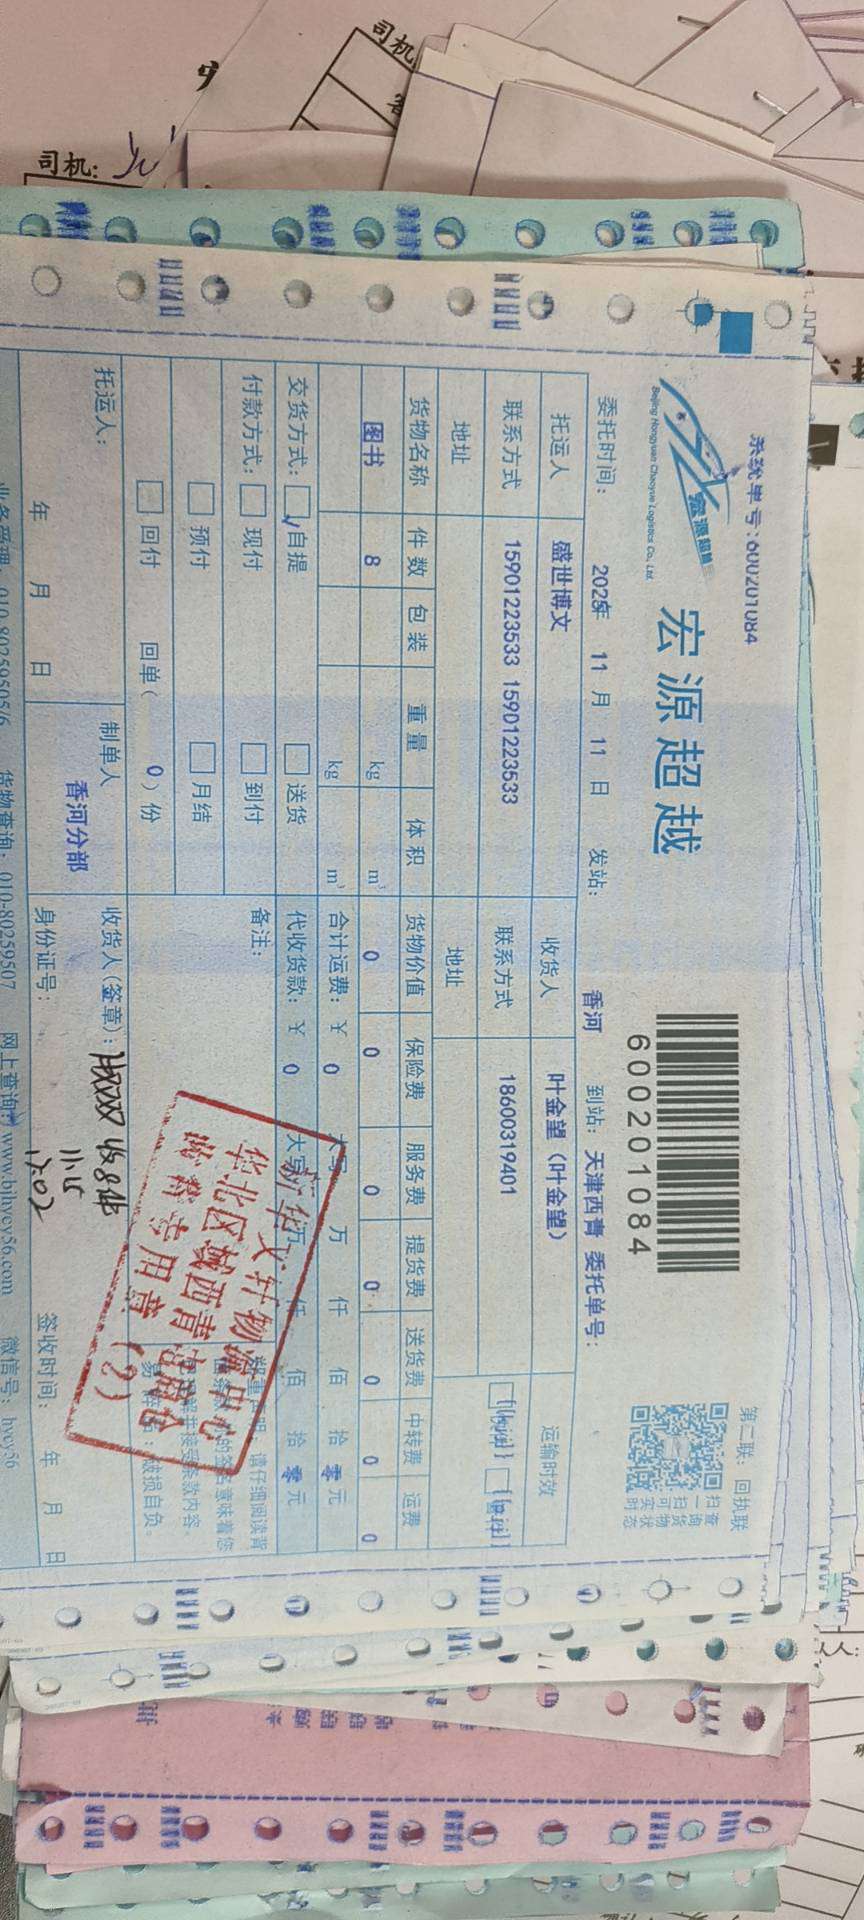 司机:
司机:
系统单号:600201084
宏源超越
Beijing Hongyuan Chaoyue Logistics Co., Ltd.
宏源超越
600201084
第二联:回执联
扫一扫可查询货物实时状态
委托时间: 2025年 11 月 11 日 发站: 香河 到站: 天津西青 委托单号:
托运人 盛世博文 收货人 叶金望(叶金望) 运输时效
联系方式 15901223533 15901223533 联系方式 18600319401
地址 地址
货物名称 件数 包装 重量 体积 货物价值 保险费 服务费 提货费 送货费 中转费 运费
图书 8 kg m³ 0 0 0 0 0 0 0
kg m³ 合计运费:¥ 0 大写 万 仟 佰 拾 零 元
交货方式: 自提 送货 代收货款:¥ 0 大写 万 仟 佰 拾 零 元
付款方式: 现付 到付 备注:
预付 月结
回付 回单( 0 )份
新华文轩物流中心
华北区域西青电商仓
收货专用章(2)
托运人: 制单人 收货人(签章): 收8件
香河分部 11.15
年 月 日 身份证号: 签收时间: 年 月 日
业务受理:010-80259505/6 货物查询:010-80259507 网上查询:www.bjhycy56.com 微信号:hycy56